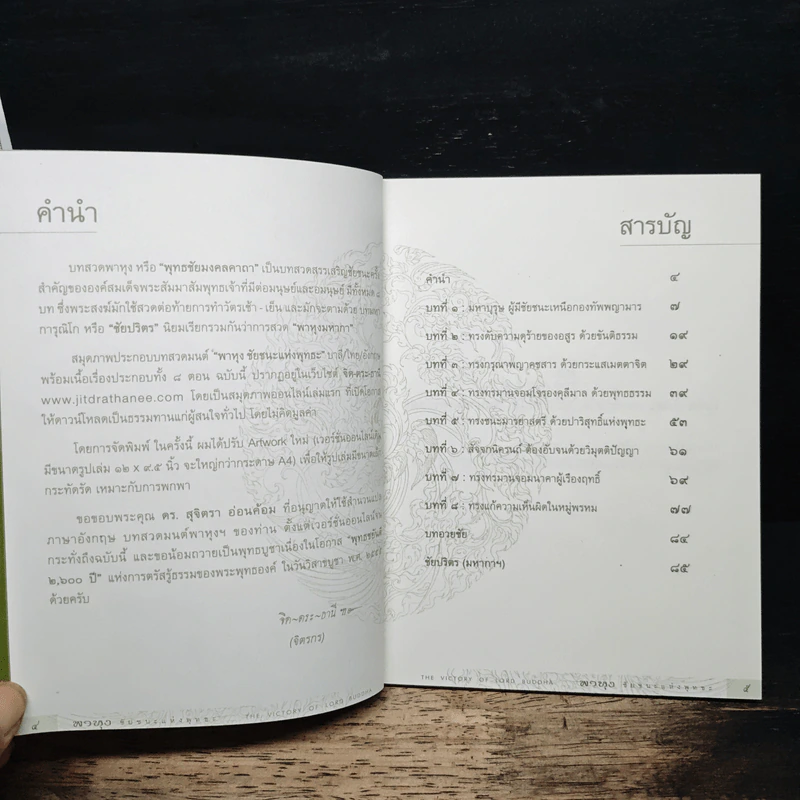 คำนำ
บทสวดพาหุง หรือ "พุทธชัยมงคลคาถา" เป็นบทสวดสรรเสริญชัยชนะครั้ง
สำคัญขององค์สมเด็จพระสัมมาสัมพุทธเจ้าที่มีต่อมนุษย์และอมนุษย์ มีทั้งหมด ๘
บท ซึ่งพระสงฆ์มักใช้สวดต่อท้ายการทำวัตรเช้า - เย็น และมักจะตามด้วย
การุณิโก หรือ "ชัยปริตร" นิยมเรียกรวมกันว่าการสวด "พาหุงมหากา"
สมุดภาพประกอบบทสวดมนต์ "พาหุง ชัยชนะแห่งพุทธะ" บาลี/ไทย/อังกฤษ
พร้อมเนื้อเรื่องประกอบทั้ง ๘ ตอน ฉบับนี้ ปรากฏอยู่ในเว็บไซต์ จิต-ดระ-ธานี
www.jitdrathanee.com โดยเป็นสมุดภาพออนไลน์เล่มแรก ที่เปิดโอกาส
ให้ดาวน์โหลดเป็นธรรมทานแก่ผู้สนใจทั่วไป โดยไม่คิดมูลค่า
โดยการจัดพิมพ์ ในครั้งนี้ ผมได้ปรับ Artwork ใหม่ (เวอร์ชั่นออนไลน์เดิม
มีขนาดรูปเล่ม ๑๒ x ๙.๕ นิ้ว จะใหญ่กว่ากระดาษ A4) เพื่อให้รูปเล่มมีขนาด
กระทัดรัด เหมาะกับการพกพา
ขอขอบพระคุณ ดร. สุจิตรา อ่อนค้อม ที่อนุญาตให้ใช้สำนวนแปล
ภาษาอังกฤษ บทสวดมนต์พาหุงฯ ของท่าน ตั้งแต่เวอร์ชั่นออนไลน์
กระทั่งถึงฉบับนี้ และขอน้อมถวายเป็นพุทธบูชาเนื่องในโอกาส "พุทธชยันตี
๒,๖๐๐ ปี" แห่งการตรัสรู้ธรรมของพระพุทธองค์ ในวันวิสาขบูชา พ.ศ. ๒๕๕๕
ด้วยครับ
จิต~ดระ~ธานี
(จิตรกร)
๔ พาหุง ชัยชนะแห่งพุทธะ THE VICTORY OF LORD BUDDHA
สารบัญ
คำนำ ๔
บทที่ ๑ : มหาบุรุษ ผู้มีชัยชนะเหนือกองทัพพญามาร ๗
บทที่ ๒ : ทรงดับความดุร้ายของอสูร ด้วยขันติธรรม ๑๙
บทที่ ๓ : ทรงกรุณาพญาคชสาร ด้วยกระแสเมตตาจิต ๒๙
บทที่ ๔ : ทรงทรมานจอมโจรองคุลีมาล ด้วยพุทธธรรม ๓๙
บทที่ ๕ : ทรงชนะมารยาสตรี ด้วยปาริสุทธิ์แห่งพุทธะ ๕๓
บทที่ ๖ : สัจจกนิครนถ์ ต้องอับจนด้วยวิมุตติปัญญา ๖๑
บทที่ ๗ : ทรงทรมานจอมนาคาผู้เรืองฤทธิ์ ๖๙
บทที่ ๘ : ทรงแก้ความเห็นผิดในหมู่พรหม ๗๗
บทอวยชัย ๘๔
ชัยปริตร (มหากาฯ) ๘๕
THE VICTORY OF LORD BUDDHA พาหุง ชัยชนะแห่งพุทธะ ๕